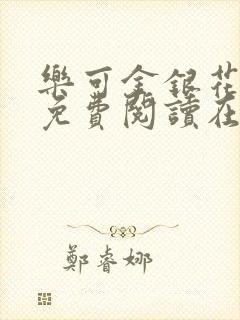 樂可金銀花
免費閱讀在
鄭睿娜